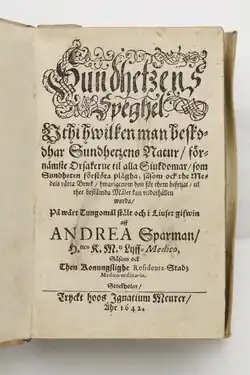 Sundhetzens
Speghel
Uthi hwilken man beskå-
dhar Sundhetzens Natur / för-
nämste Orsakerne til alla Siukdomar / som
Sundheten förstöra plägha / såsom ock the Me-
dels rätta Bruk / hwarigenom hon för them befrijas / til
thet bestämda Målet kan vnderhållen
warda /
På wårt Tungomål stält och i Liuset gifwin
aff
ANDREA Sparman /
H. K. M. Lijff-Medico,
Såsom ock
Then Konungslighe Residentz-Stadz
Medico ordinario.
Stockholm /
Tryckt hoos Ignatium Meurer /
Åhr 1642.